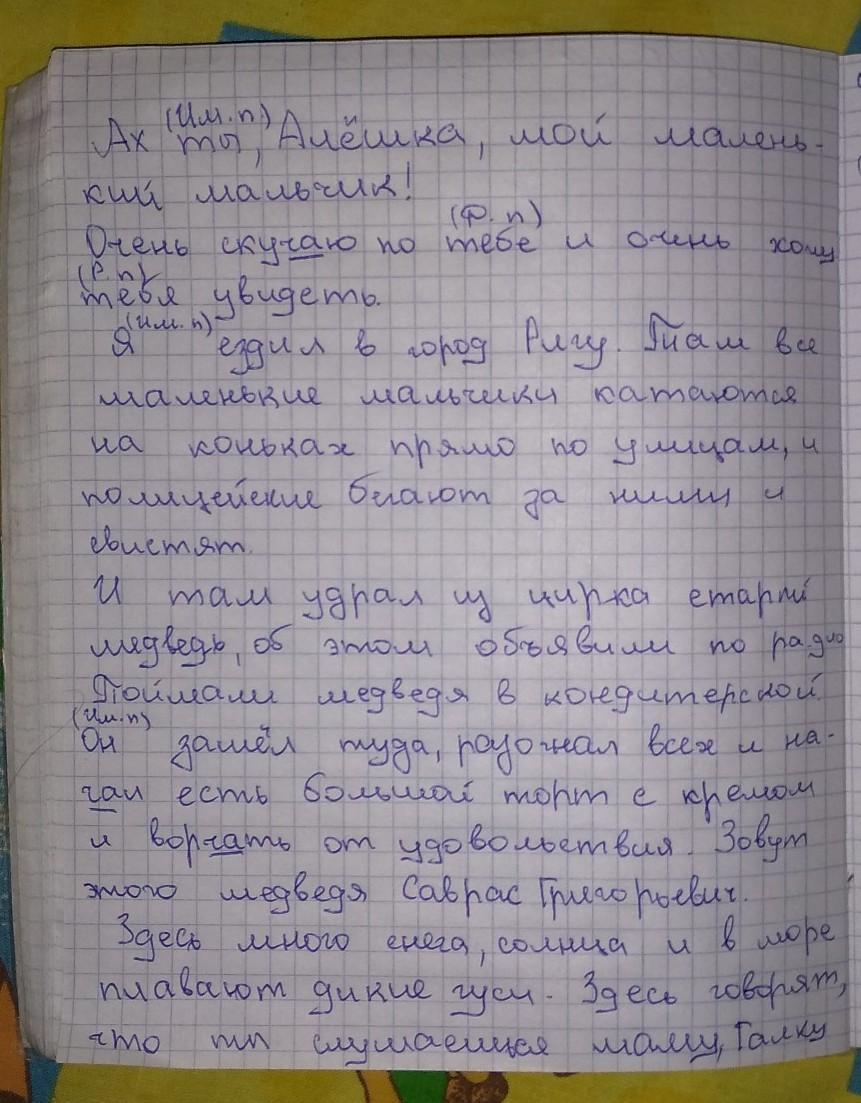 (Им. п.)
Ах ты, Алёшка, мой малень-
кий мальчик!
(Ф. п)
Очень скучаю по тебе и очень хочу
(Р. п)
тебя увидеть.
(Им. п)
Я ездил в город Ригу. Там все
маленькие мальчики катаются
на коньках прямо по улицам, и
полицейские бегают за ними и
свистят.
И там удрал из цирка старый
медведь, об этом объявили по радио
Поймали медведя в кондитерской.
(Им. п)
Он зашёл туда, разогнал всех и на-
чал есть большой торт с кремом
и ворчать от удовольствия. Зовут
этого медведя Саврас Григорьевич.
Здесь много снега, солнца и в море
плавают дикие гуси. Здесь говорят,
что ты слушаешься маму, Галку